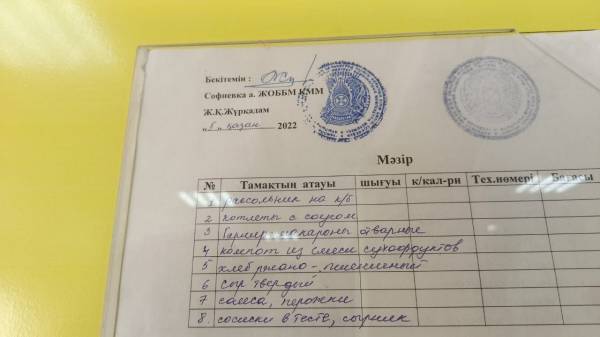 Бекітемін :
Софиевка а. ЖОББМ КММ
Ж.Қ.Жұрқадам
„5" қазан 2022
Мәзір
№ Тамақтың атауы шығуы к/кал-ри Тех.нөмері Бағасы
1 рассольник на к/б
2 котлеты с соусом
3 гарнир макароны отварные
4 компот из смеси сухофруктов
5 хлеб ржано-пшеничный
6 сыр твердый
7 самса, пирожки
8. сосиски в тесте, сырник